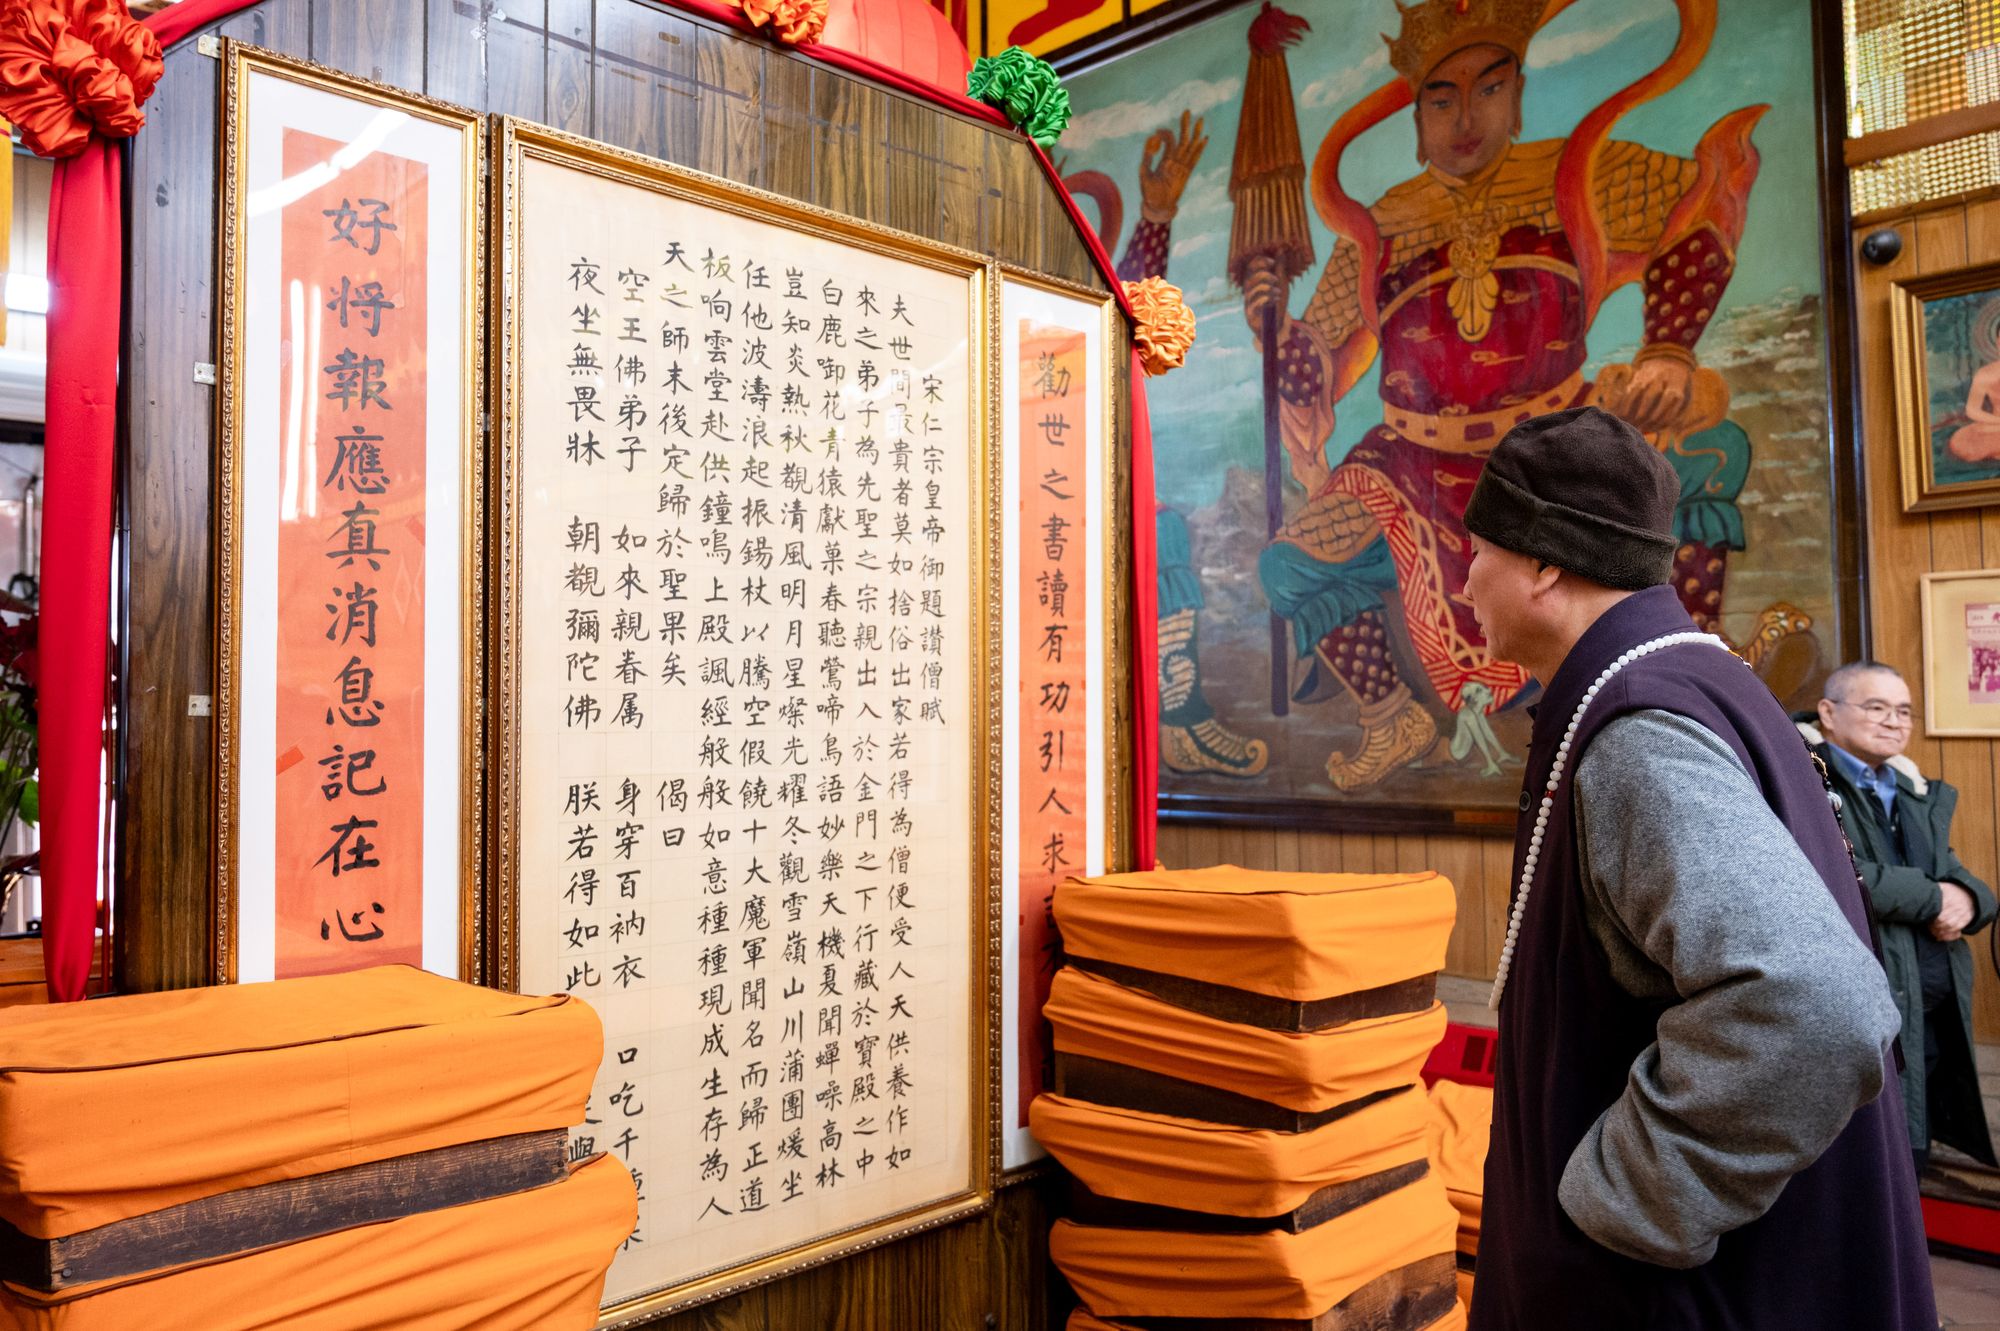 勸世之書讀有功引人求
宋仁宗皇帝御題讚僧賦
夫世間最貴者莫如捨俗出家若得為僧便受人天供養作如
來之弟子為先聖之宗親出入於金門之下行藏於寶殿之中
白鹿啣花青猿獻菓春聽鶯啼鳥語妙樂天機夏聞蟬噪高林
豈知炎熱秋觀清風明月星燦光耀冬觀雪嶺山川蒲團煖坐
任他波濤浪起振錫杖以騰空假饒十大魔軍聞名而歸正道
板响雲堂赴供鐘鳴上殿諷經般般如意種種現成生存為人
天之師末後定歸於聖果矣 偈曰
空王佛弟子 如來親眷属 身穿百衲衣 口吃千
夜坐無畏牀 朝覩彌陀佛 朕若得如此
好將報應真消息記在心